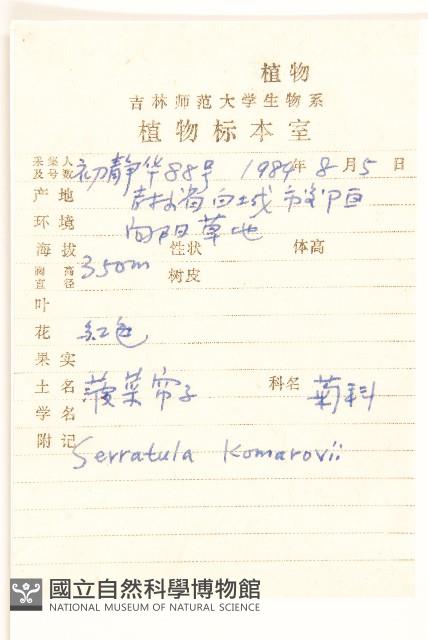 植物
吉林师范大学生物系
植物标本室
采集人及号数 初静华88号 1984年8月5日
产地 吉林省白城市郊
环境 向阳草地
海拔 350m 性状 体高
胸高直径 树皮
叶
花 红色
果实
土名 菠菜帘子 科名 菊科
学名
附记 Serratula Komarovii
國立自然科學博物館
NATIONAL MUSEUM OF NATURAL SCIENCE